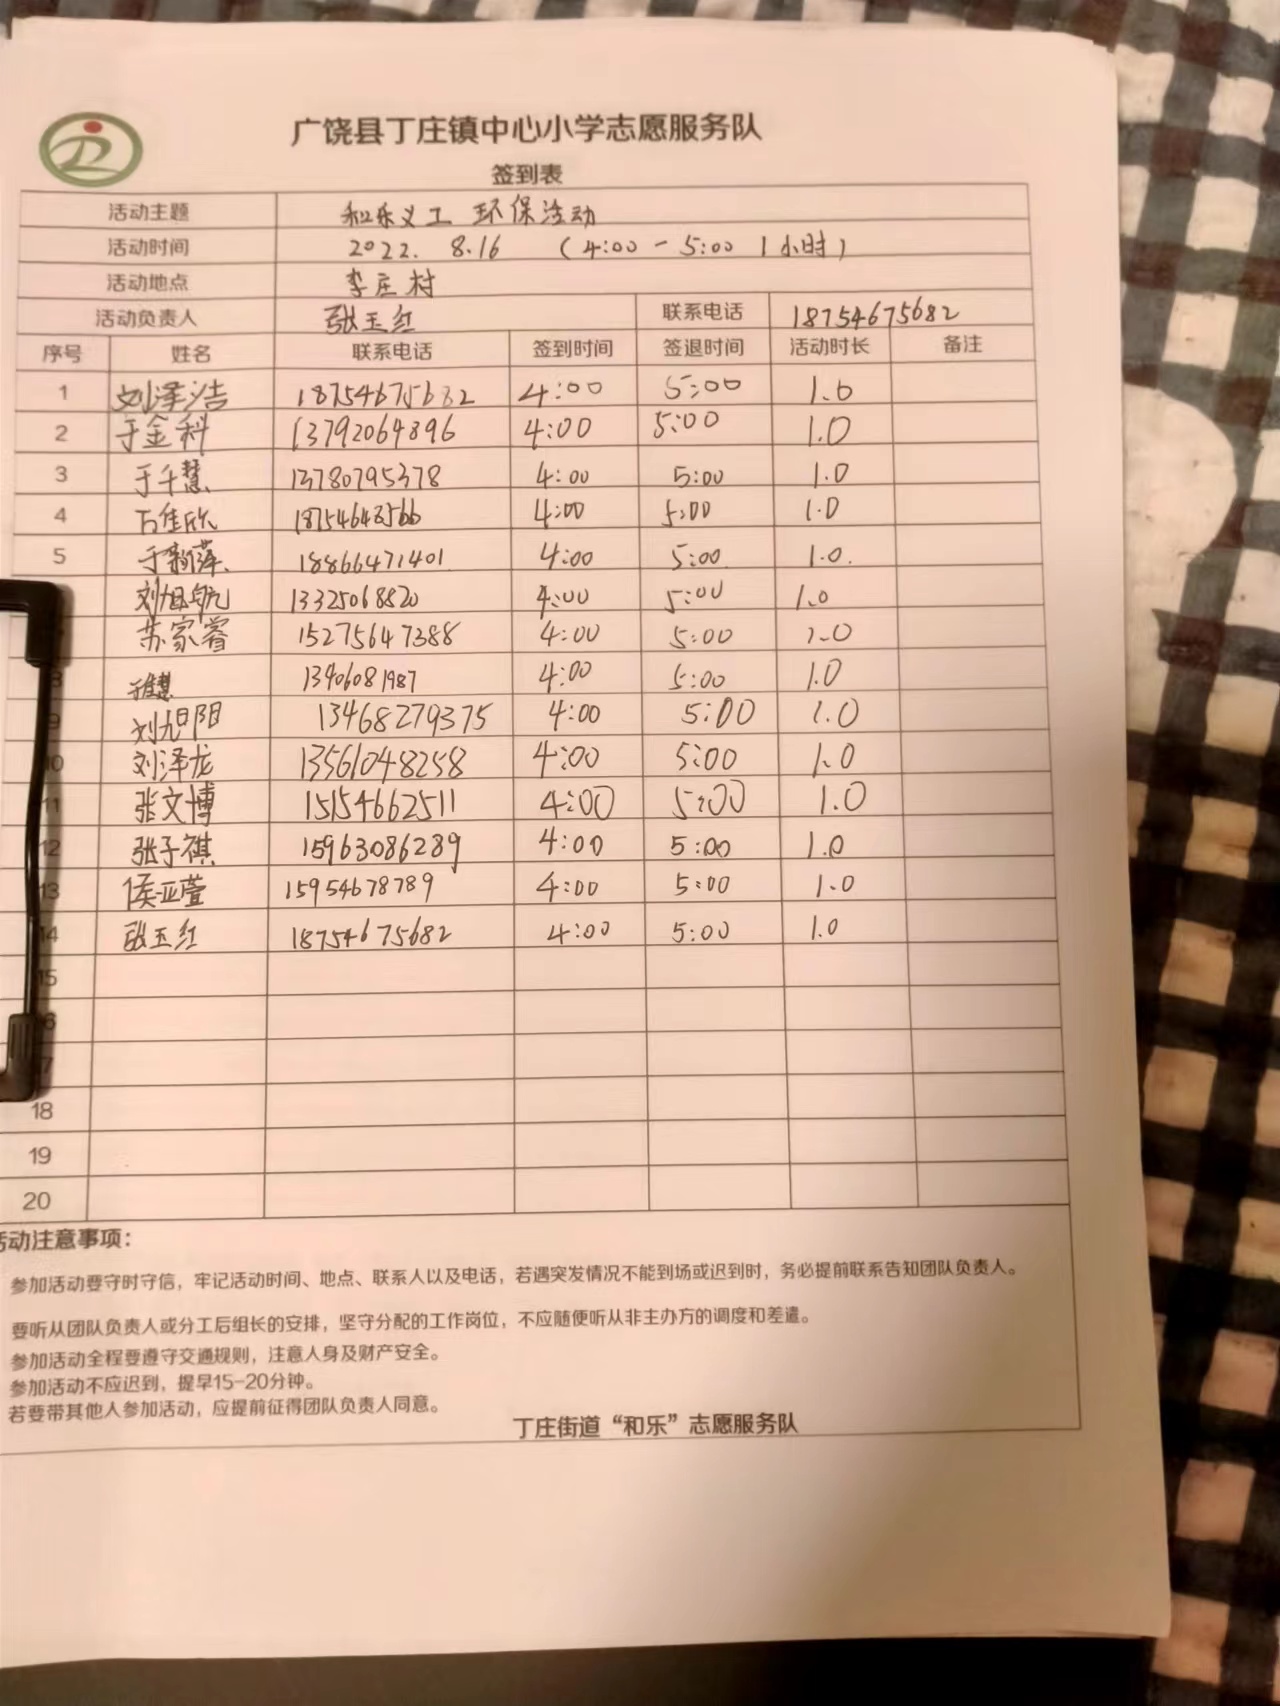 广饶县丁庄镇中心小学志愿服务队
签到表
活动主题 和乐义工 环保活动
活动时间 2022. 8.16 (4:00-5:00 1小时)
活动地点 李庄村
活动负责人 张玉红 联系电话 18754675682
序号 姓名 联系电话 签到时间 签退时间 活动时长 备注
1 刘泽浩 18754675682 4:00 5:00 1.0
2 于金科 13792064896 4:00 5:00 1.0
3 于千慧 13780795378 4:00 5:00 1.0
4 万佳欣 4:00 5:00 1.0
5 于新萍 18866471401 4:00 5:00 1.0.
刘旭航 13325068820 4:00 5:00 1.0
苏家睿 15275647388 4:00 5:00 1.0
8 13406081987 4:00 5:00 1.0
9 刘旭阳 13468279375 4:00 5:00 1.0
10 刘泽龙 13561048258 4:00 5:00 1.0
11 张文博 15154662511 4:00 5:00 1.0
12 张子祺 15963086289 4:00 5:00 1.0
13 侯亚萱 15954678789 4:00 5:00 1.0
14 张玉红 18754675682 4:00 5:00 1.0
15
6
7
18
19
20
活动注意事项：
参加活动要守时守信，牢记活动时间、地点、联系人以及电话，若遇突发情况不能到场或迟到时，务必提前联系告知团队负责人。
要听从团队负责人或分工后组长的安排，坚守分配的工作岗位，不应随便听从非主办方的调度和差遣。
参加活动全程要遵守交通规则，注意人身及财产安全。
参加活动不应迟到，提早15-20分钟。
若要带其他人参加活动，应提前征得团队负责人同意。
丁庄街道“和乐”志愿服务队